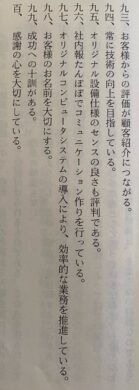 九三、お客様からの評価が顧客紹介につながる。
九四、常に技術の向上を目指している。
九五、オリジナル設備仕様のセンスの良さも評判である。
九六、社内報たんぽぽでコミュニケーション作りを行っている。
九七、オリジナルコンピュータシステムの導入により、効率的な業務を推進している。
九八、お客様のお名前を大切にする。
九九、成功への十訓がある。
百、感謝の心を大切にしている。